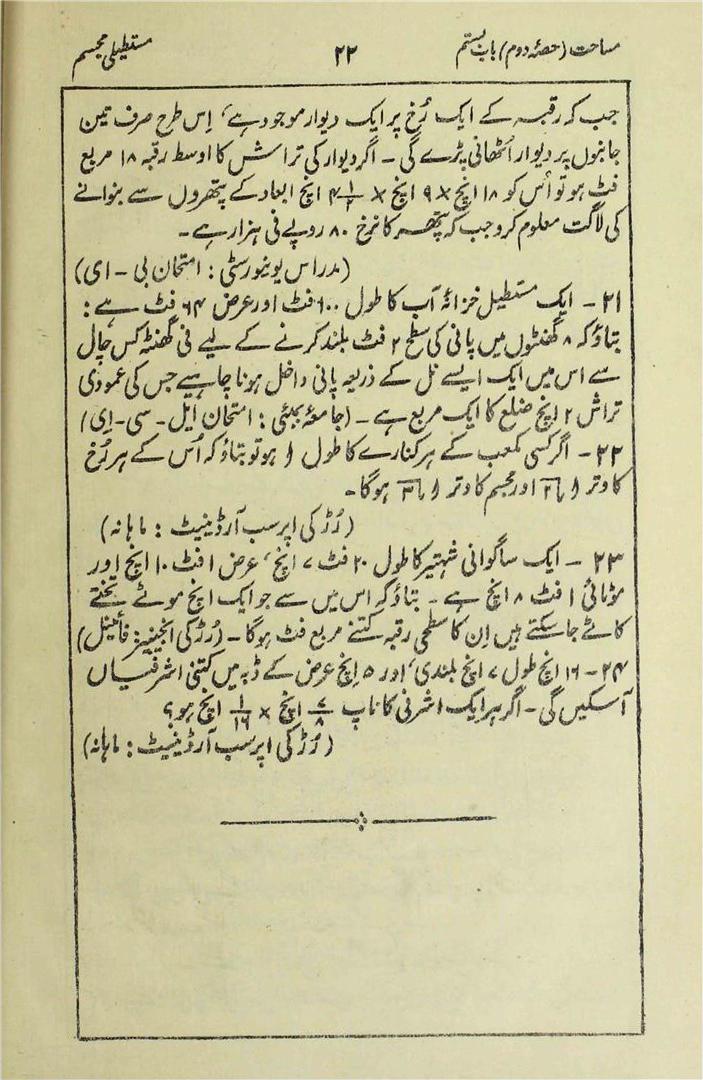 مساحت (حصۂ دوم) باب بستم ۲۲ مستطیلی مجسم
جب کہ رقبہ کے ایک رُخ پر ایک دیوار موجود ہے، اِس طرح صرف تین
جانبوں پر دیوار اُٹھانی پڑے گی ۔ اگر دیوار کی تراش کا اوسط رقبہ ۱۸ مربع
فٹ ہو تو اُس کو ۱۸ اِنچ × ۹ اِنچ × ۴ ۱/۲ اِنچ ابعاد کے پتھروں سے بنوانے
کی لاگت معلوم کرو جب کہ پتھر کا نرخ ۸۰ روپے فی ہزار ہے ۔
(مدراس یونیورسٹی : امتحان بی ۔ ای)
۲۱ ۔ ایک مستطیل خزانۂ آب کا طول ۶۰۰ فٹ اور عرض ۶۴ فٹ ہے :
بتاؤ کہ ۸ گھنٹوں میں پانی کی سطح ۲ فٹ بلند کرنے کے لیے فی گھنٹہ کس چال
سے اس میں ایک ایسے نل کے ذریعہ پانی داخل ہونا چاہیے جس کی عمودی
تراش ۲ اِنچ ضلع کا ایک مربع ہے ۔ (جامعۂ بمبئی : امتحان ایل ۔ سی ۔ اِی)
۲۲ ۔ اگر کسی مکعب کے ہر کنارے کا طول ا ہو تو بتاؤ کہ اُس کے ہر رُخ
کا وتر ا √۲ اور مجسم کا وتر ا √۳ ہوگا ۔
(رُڑکی اپر سب آرڈینیٹ : ماہانہ)
۲۳ ۔ ایک ساگوانی شہتیر کا طول ۲۰ فٹ ۷ اِنچ، عرض ۱ فٹ ۱۰ اِنچ اور
موٹائی ۱ فٹ ۸ اِنچ ہے ۔ بتاؤ کہ اس میں سے جو ایک اِنچ موٹے تختے
کاٹے جاسکتے ہیں اِن کا سطحی رقبہ کتنے مربع فٹ ہوگا ۔ (رُڑکی انجینیر: فائینل)
۲۴ ۔ ۱۶ اِنچ طول ۷ اِنچ بلندی، اور ۵ اِنچ عرض کے ڈبہ میں کتنی اشرفیاں
آسکیں گی ۔ اگر ہر ایک اشرفی کا ناپ ۷/۸ اِنچ × ۱/۱۶ اِنچ ہو؟
(رُڑکی اپر سب آرڈینیٹ : ماہانہ)